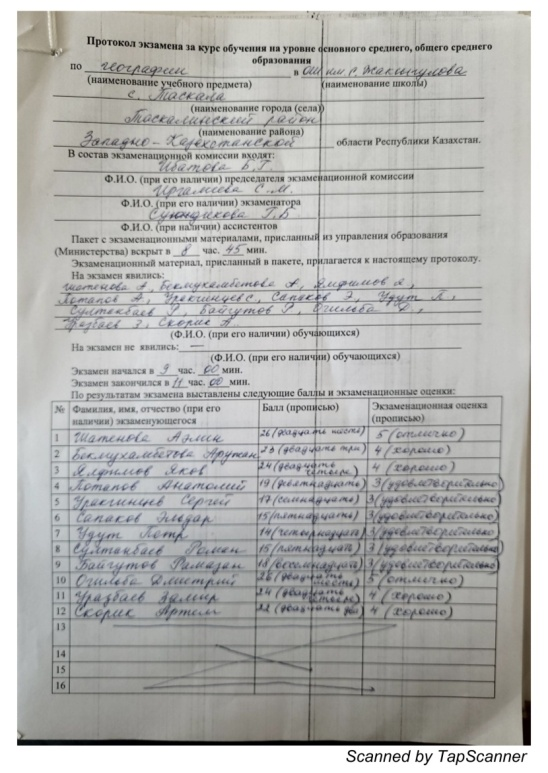 Протокол экзамена за курс обучения на уровне основного среднего, общего среднего
образования
по географии в ОШ им. С. Жаксыгулова
(наименование учебного предмета) (наименование школы)
с. Таскала
(наименование города (села))
Таскалинский район
(наименование района)
Западно-Казахстанской области Республики Казахстан.
В состав экзаменационной комиссии входят:
Ибатова Б.Г.
Ф.И.О. (при его наличии) председателя экзаменационной комиссии
Иргалиева С.М.
Ф.И.О. (при его наличии) экзаменатора
Суюндикова Г.Б
Ф.И.О. (при его наличии) ассистентов
Пакет с экзаменационными материалами, присланный из управления образования
(Министерства) вскрыт в 8 час. 45 мин.
Экзаменационный материал, присланный в пакете, прилагается к настоящему протоколу.
На экзамен явились:
Шатенова А, Бекмухамбетова А, Ялфимов Я,
Потапов А, Уракчинцев С, Сапаков Э, Удут П,
Султанбаев Р, Байгутов Р, Огильба Д,
Уразбаев З, Скорик А
(Ф.И.О. (при его наличии) обучающихся)
На экзамен не явились: —
(Ф.И.О. (при его наличии) обучающихся)
Экзамен начался в 9 час. 00 мин.
Экзамен закончился в 11 час. 00 мин.
По результатам экзамена выставлены следующие баллы и экзаменационные оценки:
№ Фамилия, имя, отчество (при его наличии) экзаменующегося Балл (прописью) Экзаменационная оценка (прописью)
1 Шатенова Аэлин 26 (двадцать шесть) 5 (отлично)
2 Бекмухамбетова Аружан 23 (двадцать три) 4 (хорошо)
3 Ялфимов Яков 24 (двадцать четыре) 4 (хорошо)
4 Потапов Анатолий 19 (девятнадцать) 3 (удовлетворительно)
5 Уракгинцев Сергей 17 (семнадцать) 3 (удовлетворительно)
6 Сапаков Элдар 15 (пятнадцать) 3 (удовлетворительно)
7 Удут Петр 14 (четырнадцат) 3 (удовлетворительно)
8 Султанбаев Роман 15 (пятнадцат) 3 (удовлетворительно)
9 Байгутов Рамазан 18 (восемнадцат) 3 (удовлетворительно)
10 Огильба Дмитрий 26 (двадцать шесть) 5 (отлично)
11 Уразбаев Замир 24 (двадцать четыре) 4 (хорошо)
12 Скорик Артем 22 (двадцать два) 4 (хорошо)
13
14
15
16
Scanned by TapScanner